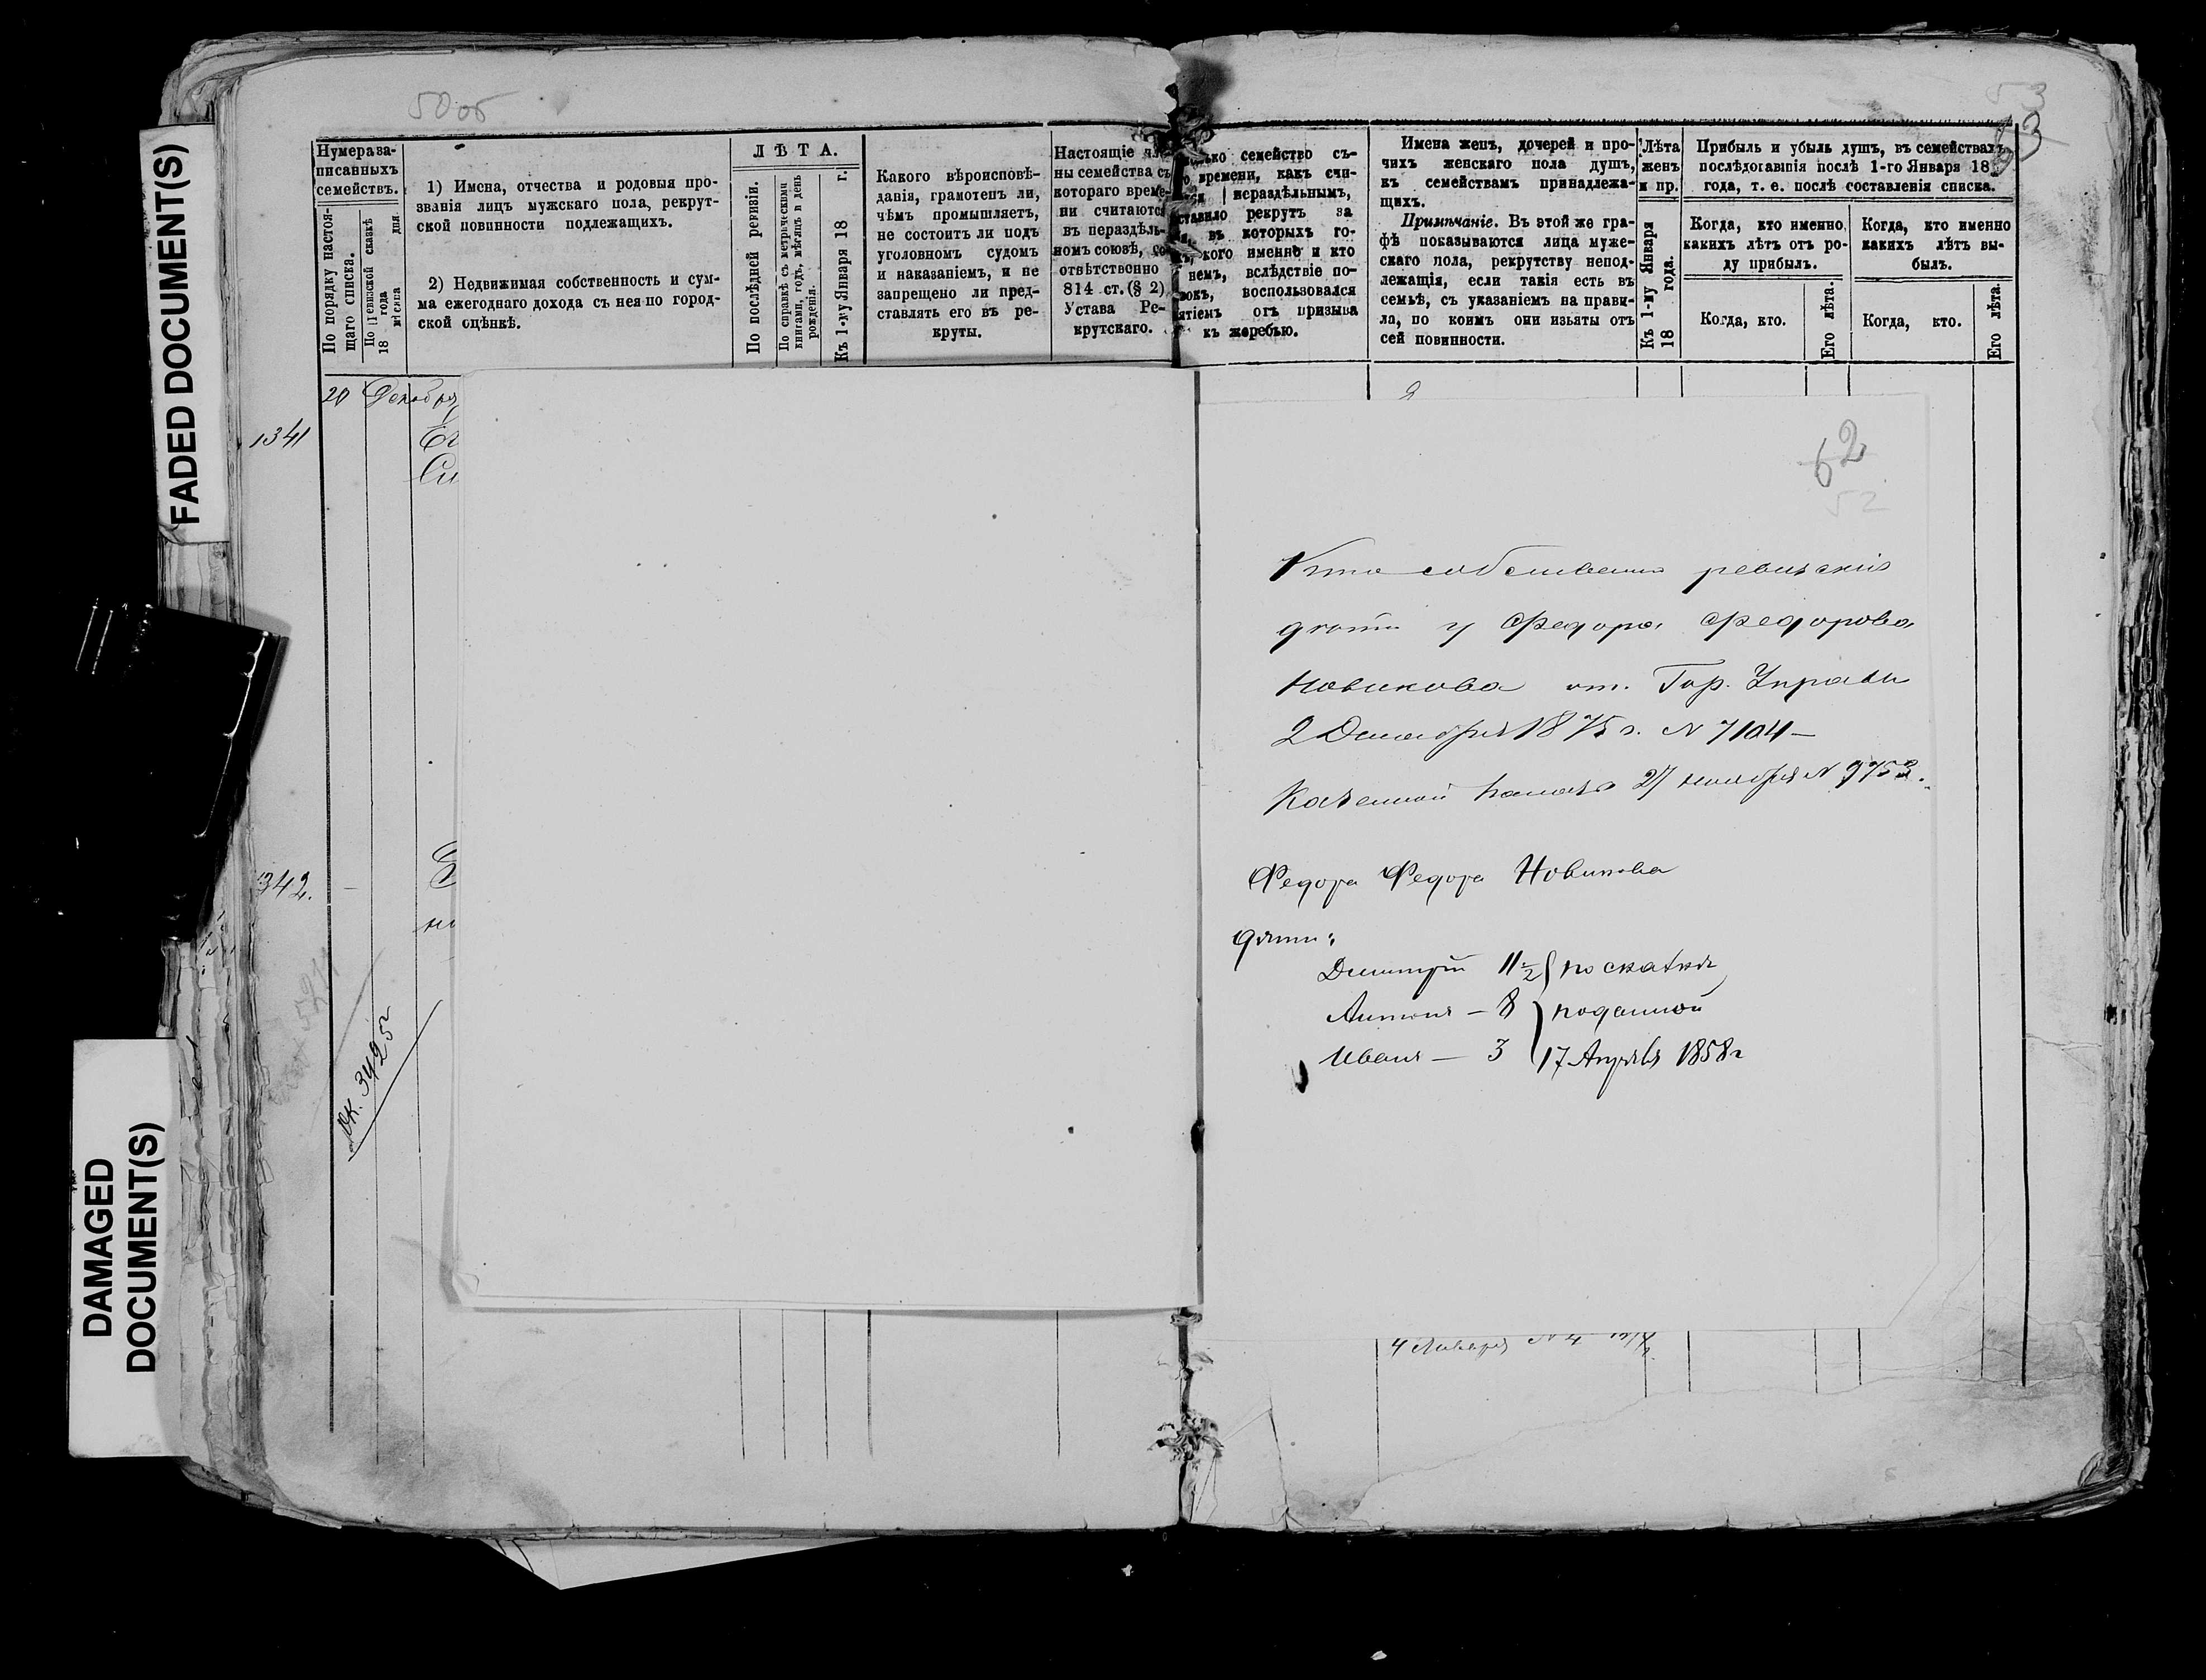 50 об
53
Нумера за-
писанныхъ
семействъ.
По порядку настоя-
щаго списка.
По Ревизской сказкѣ
18 года
мѣсяца дня.
1) Имена, отчества и родовыя про-
званія лицъ мужскаго пола, рекрут-
ской повинности подлежащихъ.
2) Недвижимая собственность и сум-
ма ежегоднаго дохода съ нея по город-
ской оцѣнкѣ.
ЛѢТА.
По послѣдней ревизіи.
По справкѣ съ метрическими
книгами, годъ, мѣсяцъ и день
рожденія.
Къ 1-му Января 18 г.
Какого вѣроисповѣ-
данія, грамотенъ ли,
чѣмъ промышляетъ,
не состоитъ ли подъ
уголовномъ судомъ
и наказаніемъ, и не
запрещено ли пред-
ставлять его въ ре-
круты.
Настоящіе чле-
ны семейства съ
котораго време-
ни считаются
въ нераздѣль-
номъ союзѣ, со-
отвѣтственно
814 ст. (§ 2)
Устава Ре-
крутскаго.
семейство съ-
времени, какъ счи-
нераздѣльнымъ,
ставило рекрутъ за
въ которыхъ го-
кого именно и кто
немъ, вслѣдствіе по-
воспользовался
ятіемъ отъ призыва
къ жеребью.
Имена женъ, дочерей и про-
чихъ женскаго пола душъ,
къ семействамъ принадлежа-
щихъ.
Примѣчаніе. Въ этой же гра-
фѣ показываются лица муже-
скаго пола, рекрутству непод-
лежащія, если такія есть въ
семьѣ, съ указаніемъ на прави-
ла, по коимъ они изъяты отъ
сей повинности.
Лѣта
женъ
и пр.
Къ 1-му Января
18 года.
Прибыль и убыль душъ, въ семействахъ
послѣдовавшія послѣ 1-го Января 18
года, т. е. послѣ составленія списка.
Когда, кто именно,
какихъ лѣтъ отъ ро-
ду прибылъ.
Когда, кто.
Его лѣта.
Когда, кто именно
какихъ лѣтъ вы-
былъ.
Когда, кто.
Его лѣта.
20 Декабря
1341
342.
Ок. 3425
62
52
Кто собственно ревизскія
дѣти у Федора Федорова
Новикова от. Гор. Управы
2 Декабря 1875 г. N 7104 —
Казенной палаты 27 ноября N 9753.
Федора Федора Новикова
дѣти:
Димитрій 11 1/2 по сказкѣ
Антонъ — 8 поданной
Иванъ — 3 17 Апрѣля 1858 г
4 Января N 4
FADED DOCUMENT(S)
DAMAGED
DOCUMENT(S)